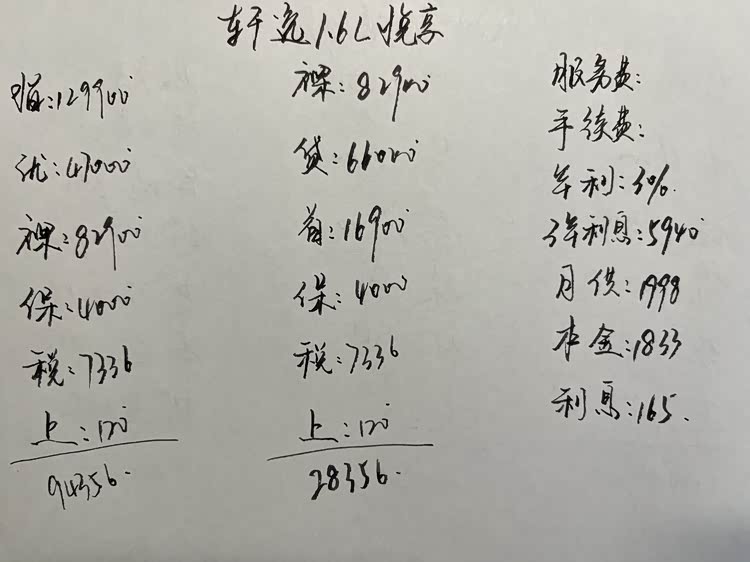 轩逸1.6L悦享
指:129900
优:47000
裸:82900
保:4000
税:7336
上:120
94356.
裸:82900
贷:66000
首:16900
保:4000
税:7336
上:120
28356.
服务费:
手续费:
年利:3%.
3年利息:5940
月供:1998
本金:1833
利息:165.